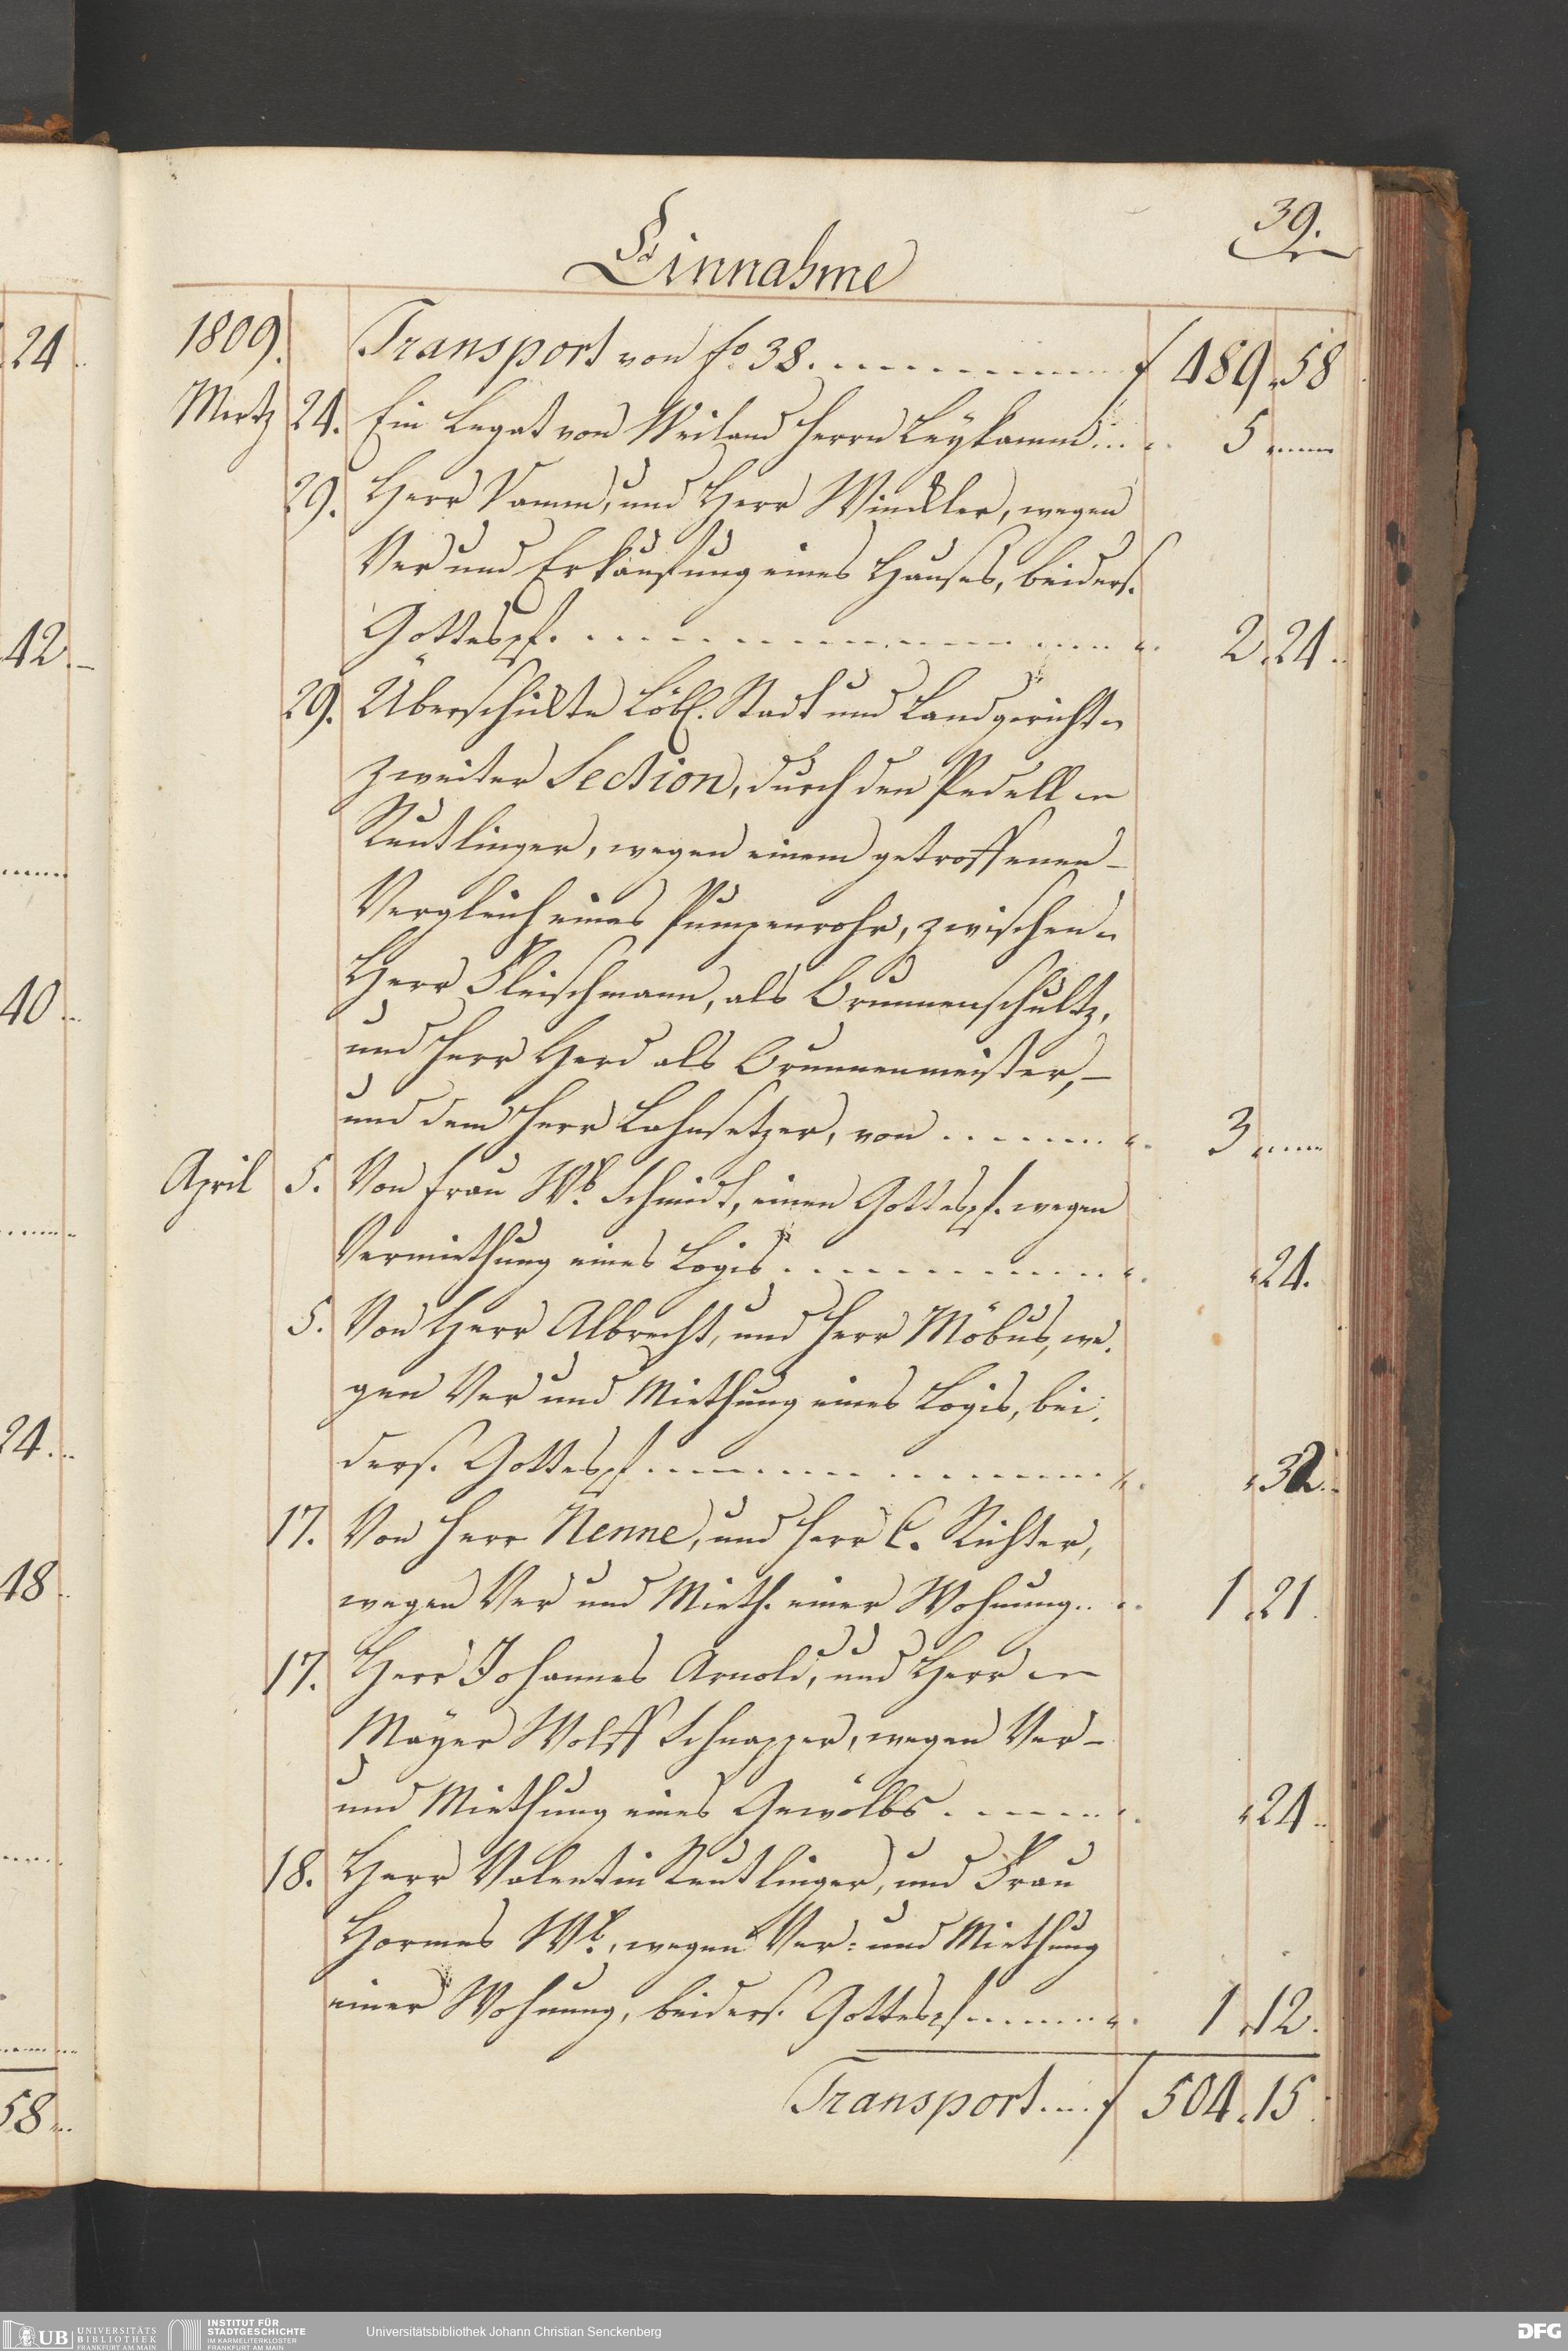 39.
Einnahme
1809. Transport von fo. 38. f 489.58
Mertz 24. Ein Legat von Weiland Herrn Leÿkamm 5
29. Herr Namm, und Herr Winckler, wegen
Ver und Erkaufung eines Hauses, beiders.
Gottespf. 2.24.
29. Überschickte Löbl. Stadt und Landgericht
zweiter Section, durch den Pedell
Reutlinger, wegen einem getroffenen
Vergleich eines Pumpenrohr, zwischen
Herr Fleischmann, als Brunnenschultz,
und Herr Herd als Brunnenmeister,
und dem Herr Lahnsetzer, von 3
April 5. Von Frau Wb. Schmidt, einen Gottespf. wegen
Vermiethung eines Logis 24.
5. Von Herr Albrecht, und Herr Möbus, we-
gen Ver und Miethung eines Logis, bei-
ders. Gottespf. 32.
17. Von Herr Nenne, und Herr C. Richter,
wegen Ver und Mieth. einer Wohnung 1.21.
17. Herr Johannes Arnold, und Herr
Maÿer Wolff Schnapper, wegen Ver-
und Miethung eines Gewölbs 24
18. Herr Valentin Reutlinger, und Frau
Hormes Wb., wegen Ver- und Miethung
einer Wohnung, beiders. Gottespf 1.12.
Transport f 504.15
24
42.
40
24
48
58
UB UNIVERSITÄTS BIBLIOTHEK FRANKFURT AM MAIN
INSTITUT FÜR STADTGESCHICHTE IM KARMELITERKLOSTER FRANKFURT AM MAIN
Universitätsbibliothek Johann Christian Senckenberg
DFG